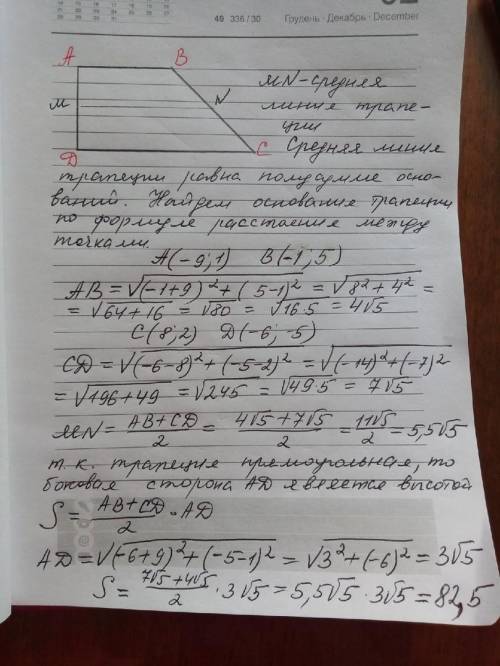 49 336/30 Грудень · Декабрь · December
A B
M N
D C
MN - средняя
линия трапе-
ции
Средняя линия
трапеции равна полусумме осно-
ваний. Найдем основания трапеции
по формуле расстояния между
точками.
A(-9; 1) B(-1; 5)
AB = √(-1+9)² + (5-1)² = √8² + 4² =
= √64+16 = √80 = √16·5 = 4√5
C(8; 2) D(-6; -5)
CD = √(-6-8)² + (-5-2)² = √(-14)² + (-7)²
= √196+49 = √245 = √49·5 = 7√5
MN = AB+CD/2 = 4√5+7√5/2 = 11√5/2 = 5,5√5
т.к. трапеция прямоугольная, то
боковая сторона AD является высотой
S = AB+CD/2 · AD
AD = √(-6+9)² + (-5-1)² = √3² + (-6)² = 3√5
S = 7√5+4√5/2 · 3√5 = 5,5√5 · 3√5 = 82,5